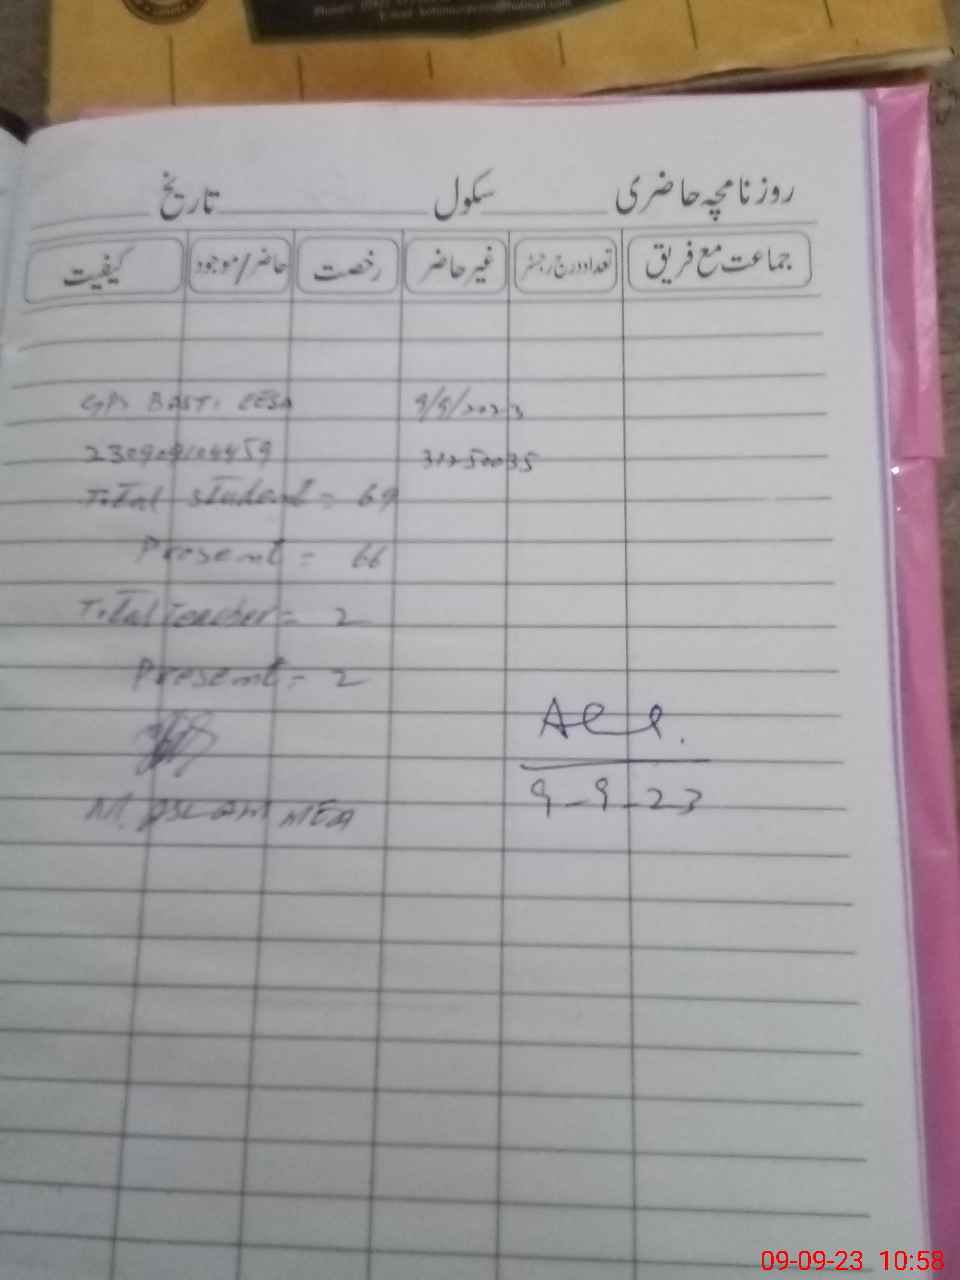 E-mail:
روزنامچہ حاضری سکول تاریخ
جماعت مع فریق تعداد درج رجسٹر غیر حاضر رخصت حاضر/موجود کیفیت
BASTI EESA 9/9/2023
230909104459 31250035
Total student = 69
Present = 66
Total Teacher = 2
Present = 2
9-9-23
M. ASLAM MEA
09-09-23 10:58